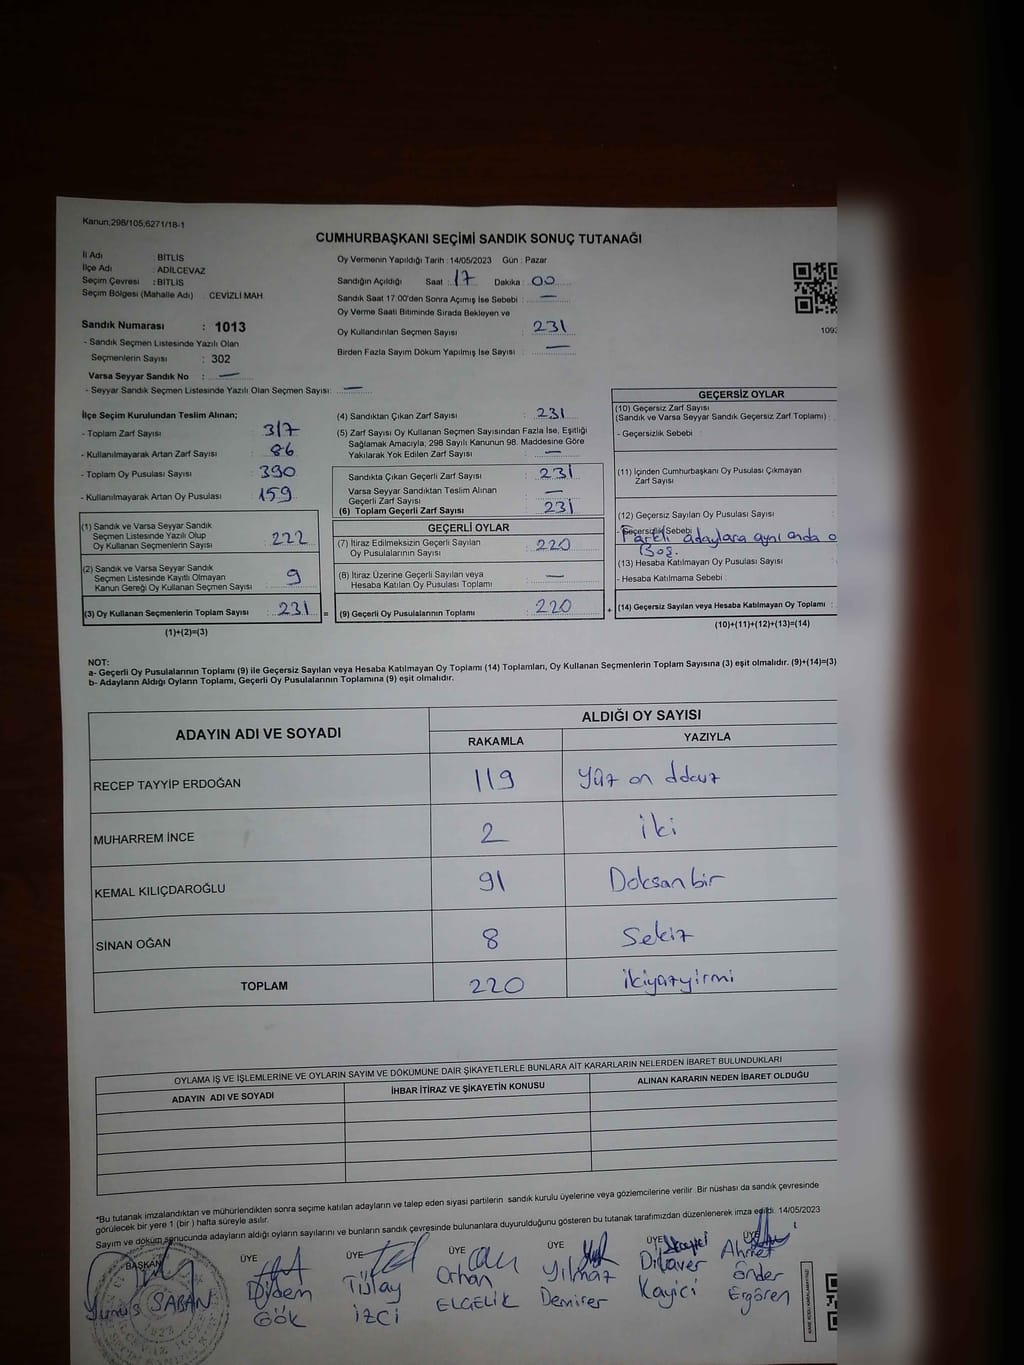 Kanun;298/105;6271/18-1
CUMHURBAŞKANI SEÇİMİ SANDIK SONUÇ TUTANAĞI
İl Adı : BİTLİS
İlçe Adı : ADİLCEVAZ
Seçim Çevresi : BİTLİS
Seçim Bölgesi (Mahalle Adı) : CEVİZLİ MAH
Oy Vermenin Yapıldığı Tarih : 14/05/2023 Gün : Pazar
Sandığın Açıldığı Saat : 17 Dakika : 00
Sandık Saat 17.00'den Sonra Açımış İse Sebebi : —
Oy Verme Saati Bitiminde Sırada Bekleyen ve
Oy Kullandırılan Seçmen Sayısı : 231
Birden Fazla Sayım Döküm Yapılmış İse Sayısı : —
Sandık Numarası : 1013
- Sandık Seçmen Listesinde Yazılı Olan
Seçmenlerin Sayısı : 302
Varsa Seyyar Sandık No : —
- Seyyar Sandık Seçmen Listesinde Yazılı Olan Seçmen Sayısı: —
İlçe Seçim Kurulundan Teslim Alınan;
- Toplam Zarf Sayısı : 317
- Kullanılmayarak Artan Zarf Sayısı : 86
- Toplam Oy Pusulası Sayısı : 390
- Kullanılmayarak Artan Oy Pusulası : 159
(1) Sandık ve Varsa Seyyar Sandık
Seçmen Listesinde Yazılı Olup
Oy Kullanan Seçmenlerin Sayısı : 222
(2) Sandık ve Varsa Seyyar Sandık
Seçmen Listesinde Kayıtlı Olmayan
Kanun Gereği Oy Kullanan Seçmen Sayısı : 9
(3) Oy Kullanan Seçmenlerin Toplam Sayısı : 231 =
(1)+(2)=(3)
(4) Sandıktan Çıkan Zarf Sayısı : 231
(5) Zarf Sayısı Oy Kullanan Seçmen Sayısından Fazla İse, Eşitliği
Sağlamak Amacıyla, 298 Sayılı Kanunun 98. Maddesine Göre
Yakılarak Yok Edilen Zarf Sayısı : —
Sandıkta Çıkan Geçerli Zarf Sayısı : 231
Varsa Seyyar Sandıktan Teslim Alınan
Geçerli Zarf Sayısı : —
(6) Toplam Geçerli Zarf Sayısı : 231
GEÇERLİ OYLAR
(7) İtiraz Edilmeksizin Geçerli Sayılan
Oy Pusulalarının Sayısı : 220
(8) İtiraz Üzerine Geçerli Sayılan veya
Hesaba Katılan Oy Pusulası Toplamı : —
(9) Geçerli Oy Pusulalarının Toplamı : 220 +
109
GEÇERSİZ OYLAR
(10) Geçersiz Zarf Sayısı
(Sandık ve Varsa Seyyar Sandık Geçersiz Zarf Toplamı) :
- Geçersizlik Sebebi :
(11) İçinden Cumhurbaşkanı Oy Pusulası Çıkmayan
Zarf Sayısı
(12) Geçersiz Sayılan Oy Pusulası Sayısı
- Geçersizlik Sebebi
Farklı adaylara aynı anda o
Boş.
(13) Hesaba Katılmayan Oy Pusulası Sayısı
- Hesaba Katılmama Sebebi
(14) Geçersiz Sayılan veya Hesaba Katılmayan Oy Toplamı :
(10)+(11)+(12)+(13)=(14)
NOT:
a- Geçerli Oy Pusulalarının Toplamı (9) ile Geçersiz Sayılan veya Hesaba Katılmayan Oy Toplamı (14) Toplamları, Oy Kullanan Seçmenlerin Toplam Sayısına (3) eşit olmalıdır. (9)+(14)=(3)
b- Adayların Aldığı Oyların Toplamı, Geçerli Oy Pusulalarının Toplamına (9) eşit olmalıdır.
ADAYIN ADI VE SOYADI
ALDIĞI OY SAYISI
RAKAMLA YAZIYLA
RECEP TAYYİP ERDOĞAN 119 Yüz on dokuz
MUHARREM İNCE 2 iki
KEMAL KILIÇDAROĞLU 91 Doksan bir
SİNAN OĞAN 8 Sekiz
TOPLAM 220 ikiyüzyirmi
OYLAMA İŞ VE İŞLEMLERİNE VE OYLARIN SAYIM VE DÖKÜMÜNE DAİR ŞİKAYETLERLE BUNLARA AİT KARARLARIN NELERDEN İBARET BULUNDUKLARI
ADAYIN ADI VE SOYADI İHBAR İTİRAZ VE ŞİKAYETİN KONUSU ALINAN KARARIN NEDEN İBARET OLDUĞU
*Bu tutanak imzalandıktan ve mühürlendikten sonra seçime katılan adayların ve talep eden siyasi partilerin sandık kurulu üyelerine veya gözlemcilerine verilir. Bir nüshası da sandık çevresinde
görülecek bir yere 1 (bir) hafta süreyle asılır.
Sayım ve döküm sonucunda adayların aldığı oyların sayılarını ve bunların sandık çevresinde bulunanlara duyurulduğunu gösteren bu tutanak tarafımızdan düzenlenerek imza edildi. 14/05/2023
BAŞKAN ÜYE ÜYE ÜYE ÜYE ÜYE ÜYE
Yunus ŞABAN
Didem Gök
Tülay İZCİ
Orhan ELGELİK
Yılmaz Demirer
Dilaver Kayici
Ahmet Önder Ergören